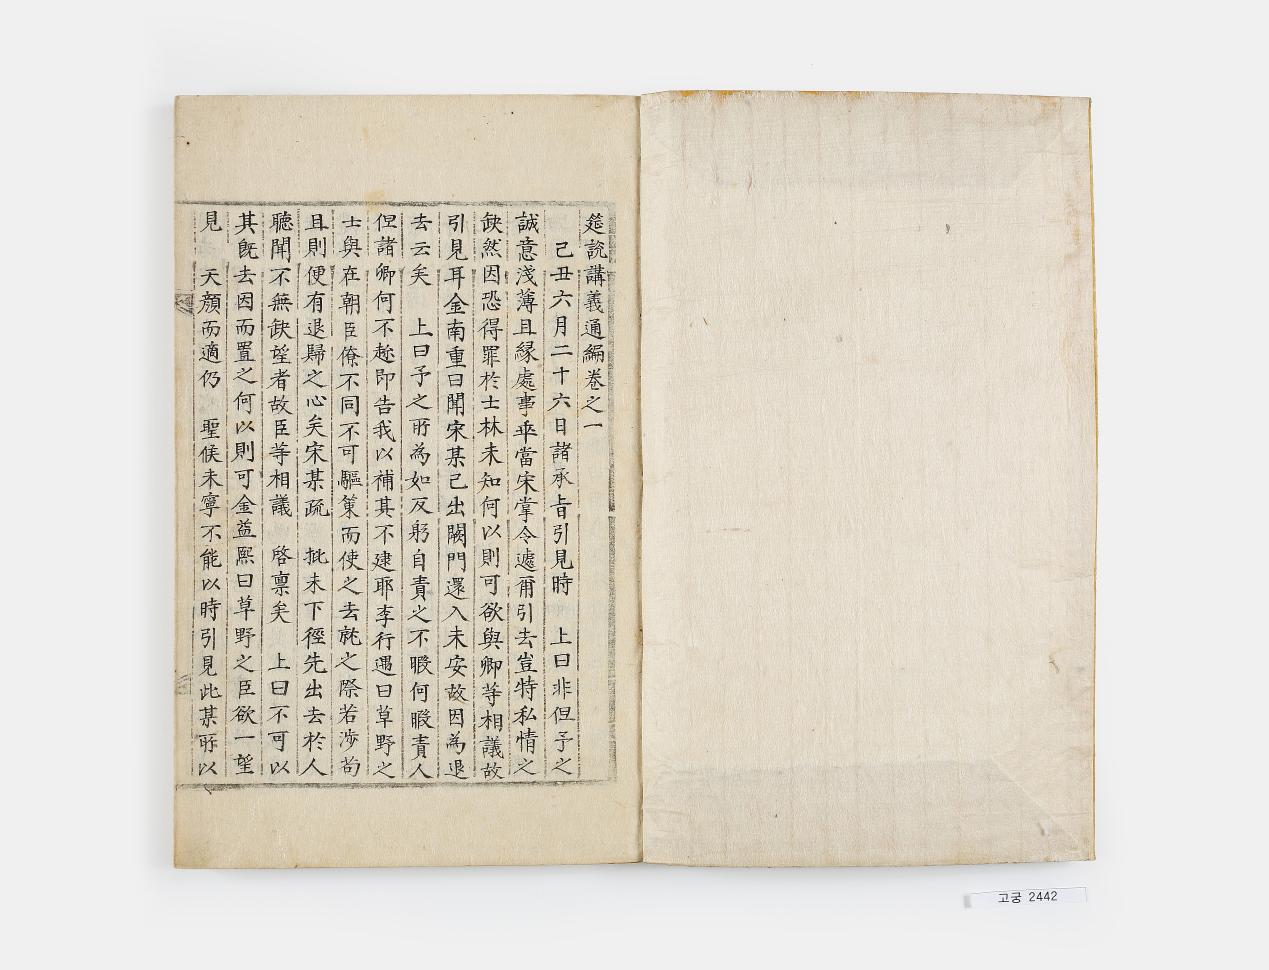 筵說講義通編卷之一
己丑六月二十六日諸承旨引見時　上曰非但予之
誠意淺薄且緣處事乖當宋掌令遽爾引去豈特私情之
缺然因恐得罪於士林未知何以則可欲與卿等相議故
引見耳金南重曰聞宋某已出闕門還入未安故因為退
去云矣　上曰予之所為如反躬自責之不暇何暇責人
但諸卿何不趁即告我以補其不逮耶李行遇曰草野之
士與在朝臣僚不同不可驅策而使之去就之際若涉苟
且則便有退歸之心矣宋某疏　批未下徑先出去於人
聽聞不無缺望者故臣等相議　啓稟矣　上曰不可以
其旣去因而置之何以則可金益熙曰草野之臣欲一望
見　天顔而適仍　聖候未寧不能以時引見此某所以
고궁 2442